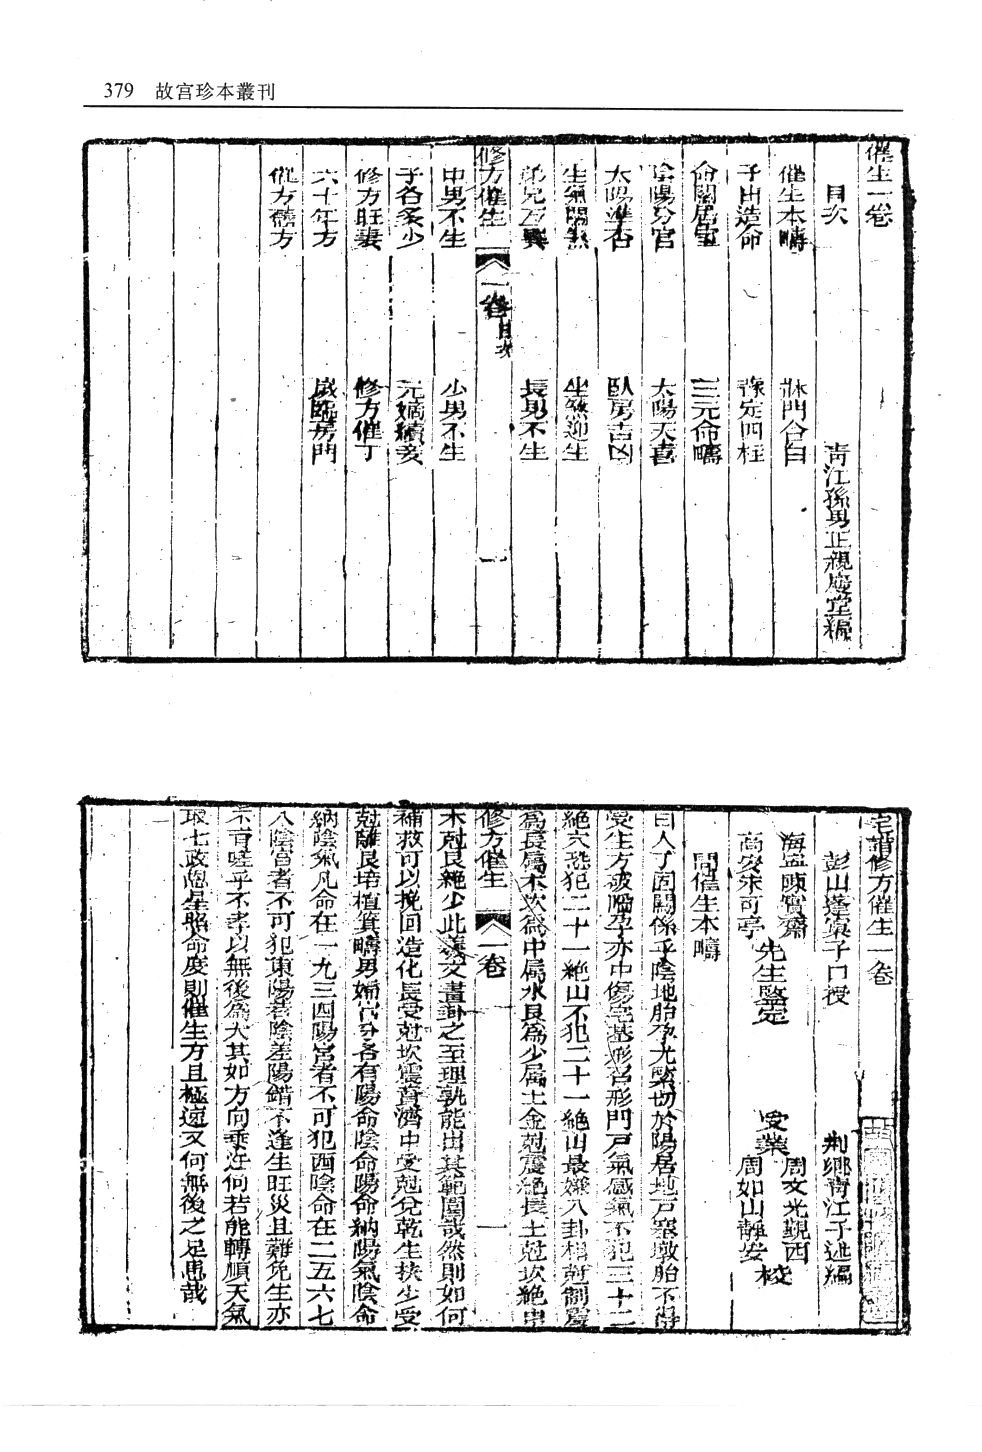 379 故宮珍本叢刊
催生一卷
目次
青江孫男正親慶堂編
催生本疇 牀門合白
子由造命 豫定四柱
命關居室 三元命疇
陰陽分官 太陽天喜
太陽準否 臥房吉凶
生氣關煞 坐煞迎生
弟兄互異 長男不生
修方催生 一卷 目次 一
中男不生 少男不生
子各多少 元嫡續妾
修方旺妻 修方催丁
六十年方 歲臨房門
催方禳方
宅譜修方催生一卷
彭山蓬窠子口授 荆鄉青江子述編
海寧陳實齋
高安朱可亭
先生鑒定
受業
周文光觀西
周如山靜安
校
問催生本疇
曰人丁固關係乎陰地胎孕尤緊切於陽居地戸塞墩胎不得
受生方破囓孕亦中傷宅基形召形門戸氣感氣不犯三十二
絶六恐犯二十一絶山不犯二十一絶山最嫌八卦相尅制震
爲長屬木坎爲中屬水艮爲少屬土金尅震絶長土尅坎絶中
修方催生 一卷 一
木尅艮絶少此羲文畫卦之至理孰能出其範圍哉然則如何
補救可以挽回造化長受尅坎震菑濟中受尅兌乾生扶少受
尅離艮培植箕疇男婦宮分各有陽命陰命陽命納陽氣陰命
納陰氣凡命在一九三四陽宮者不可犯西陰命在二五六七
八陰宮者不可犯東陽若陰差陽錯不逢生旺災且難免生亦
不育嗟乎不孝以無後爲大其如方向乘迕何若能轉順天氣
取七政恩星照命度則催生方且極速又何無後之足患哉